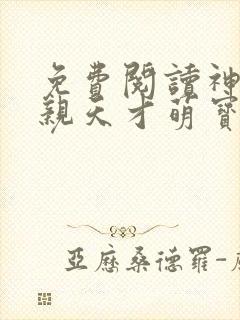 免費閱讀神
親天才萌寶
亞歷桑德羅-